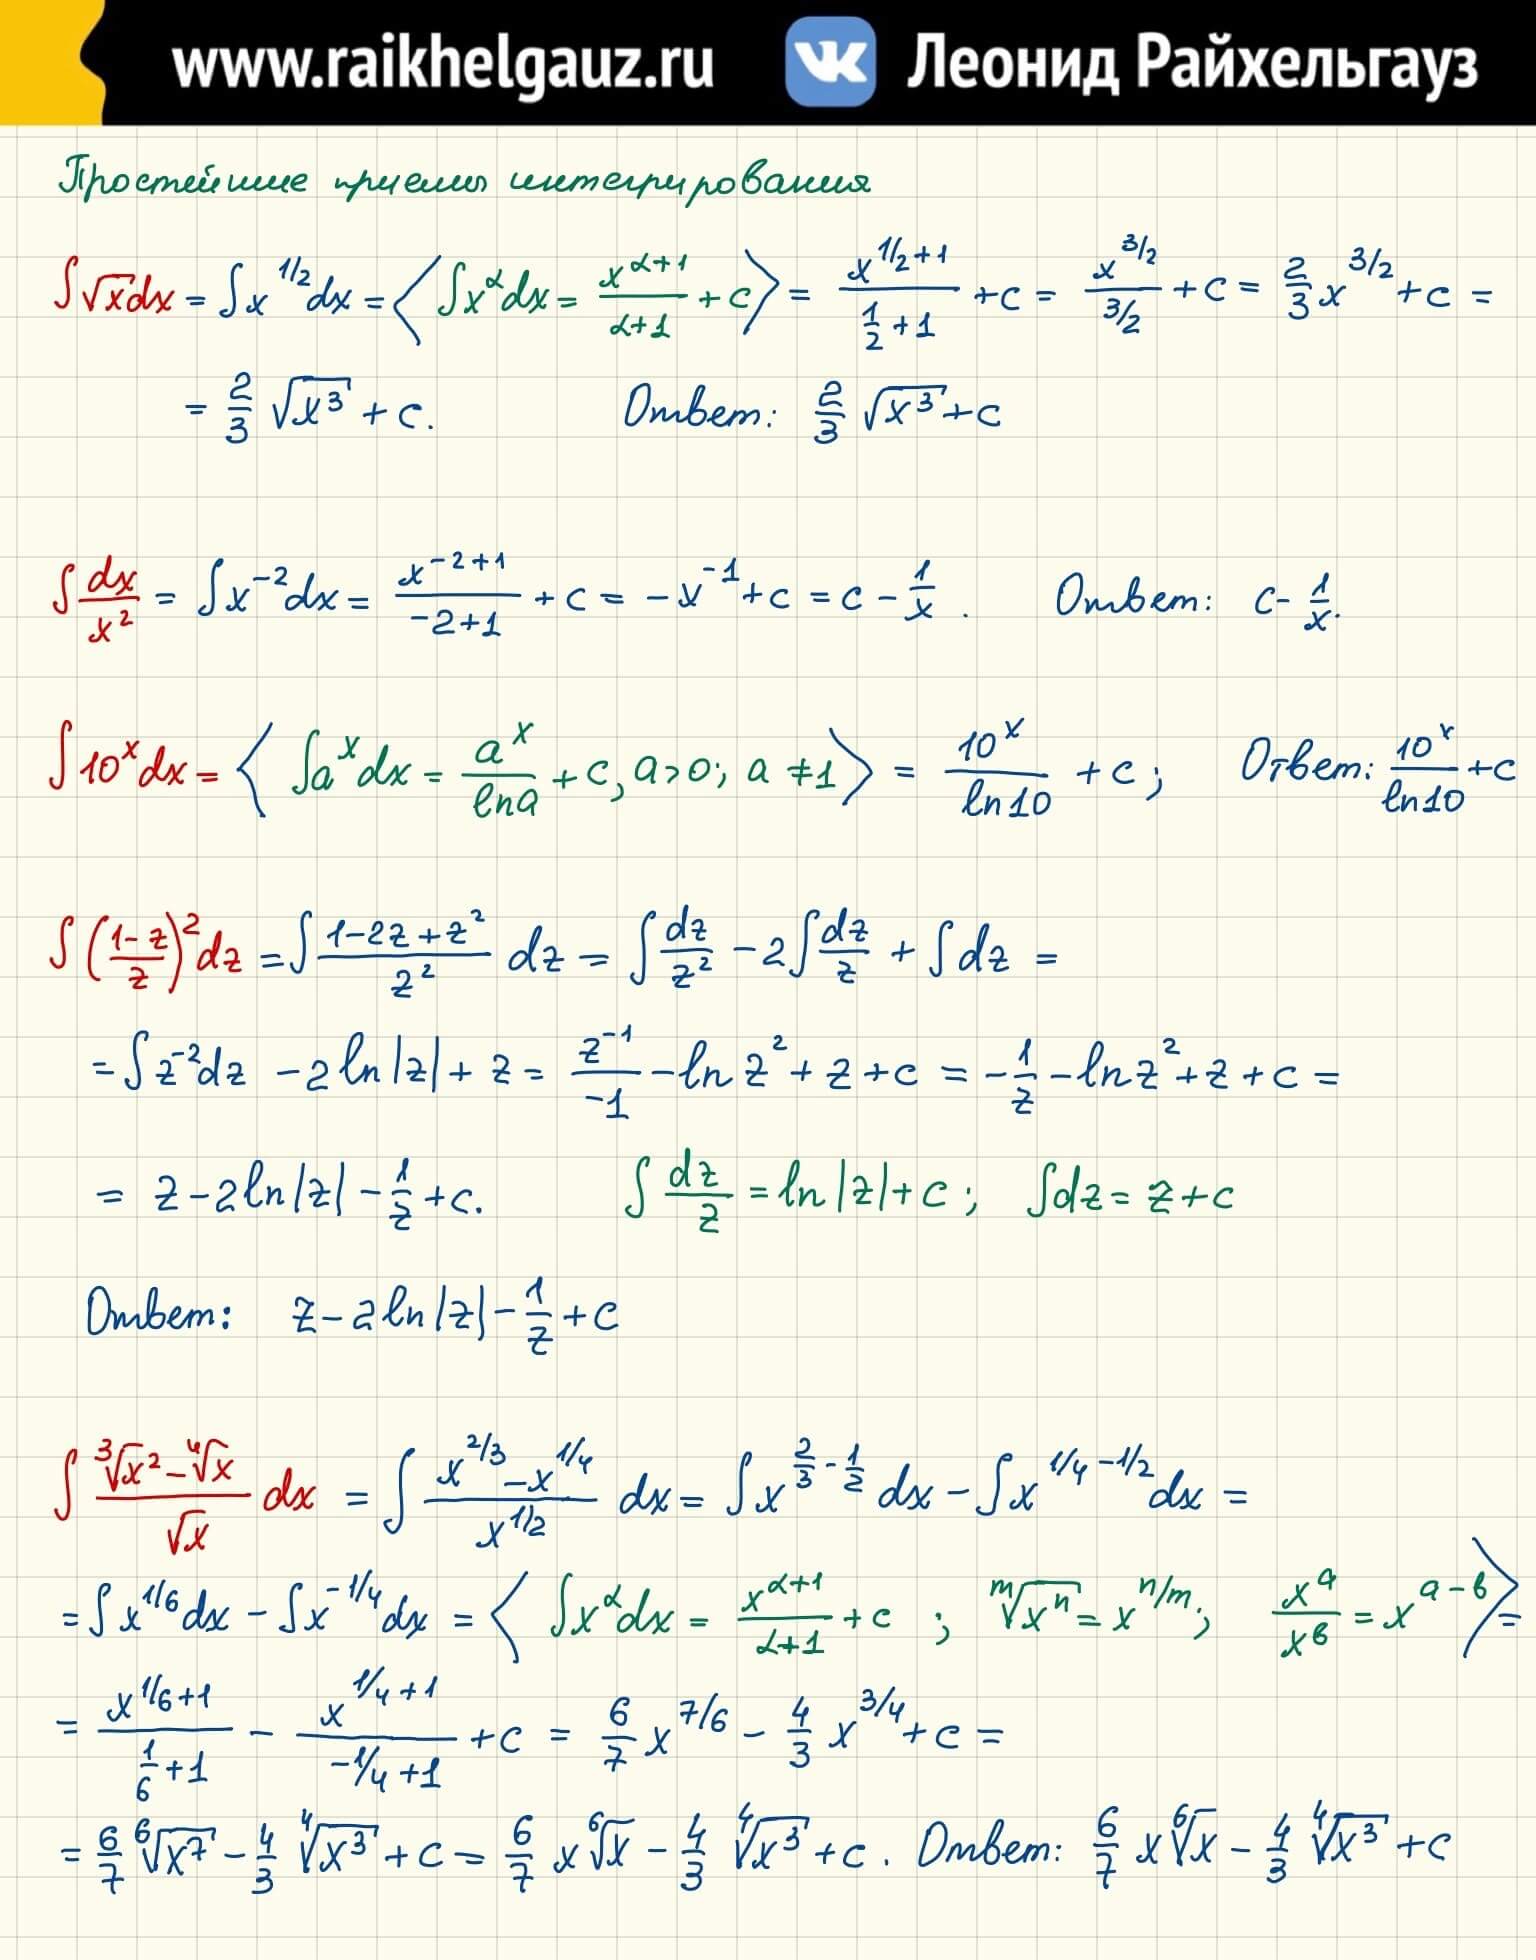 www.raikhelgauz.ru VK Леонид Райхельгауз
Простейшие приемы интегрирования
∫√x dx = ∫x^{1/2} dx = ⟨∫x^α dx = x^{α+1}/(α+1) + c⟩ = x^{1/2+1}/(1/2+1) + c = x^{3/2}/(3/2) + c = 2/3 x^{3/2} + c =
= 2/3 √(x^3) + c. Ответ: 2/3 √(x^3) + c
∫dx/x^2 = ∫x^{-2} dx = x^{-2+1}/(-2+1) + c = -x^{-1} + c = c - 1/x. Ответ: c - 1/x.
∫10^x dx = ⟨∫a^x dx = a^x/ln a + c, a>0; a≠1⟩ = 10^x/ln10 + c; Ответ: 10^x/ln10 + c
∫((1-z)/z)^2 dz = ∫(1-2z+z^2)/z^2 dz = ∫dz/z^2 - 2∫dz/z + ∫dz =
= ∫z^{-2} dz - 2ln|z| + z = z^{-1}/(-1) - ln z^2 + z + c = -1/z - ln z^2 + z + c =
= z - 2ln|z| - 1/z + c. ∫dz/z = ln|z| + c; ∫dz = z + c
Ответ: z - 2ln|z| - 1/z + c
∫(∛(x^2) - ∜x)/√x dx = ∫(x^{2/3} - x^{1/4})/x^{1/2} dx = ∫x^{2/3 - 1/2} dx - ∫x^{1/4 - 1/2} dx =
= ∫x^{1/6} dx - ∫x^{-1/4} dx = ⟨∫x^α dx = x^{α+1}/(α+1) + c; ᵐ√(x^n) = x^{n/m}; x^a/x^b = x^{a-b}⟩ =
= x^{1/6+1}/(1/6+1) - x^{1/4+1}/(-1/4+1) + c = 6/7 x^{7/6} - 4/3 x^{3/4} + c =
= 6/7 ⁶√(x^7) - 4/3 ∜(x^3) + c = 6/7 x ⁶√x - 4/3 ∜(x^3) + c. Ответ: 6/7 x ⁶√x - 4/3 ∜(x^3) + c